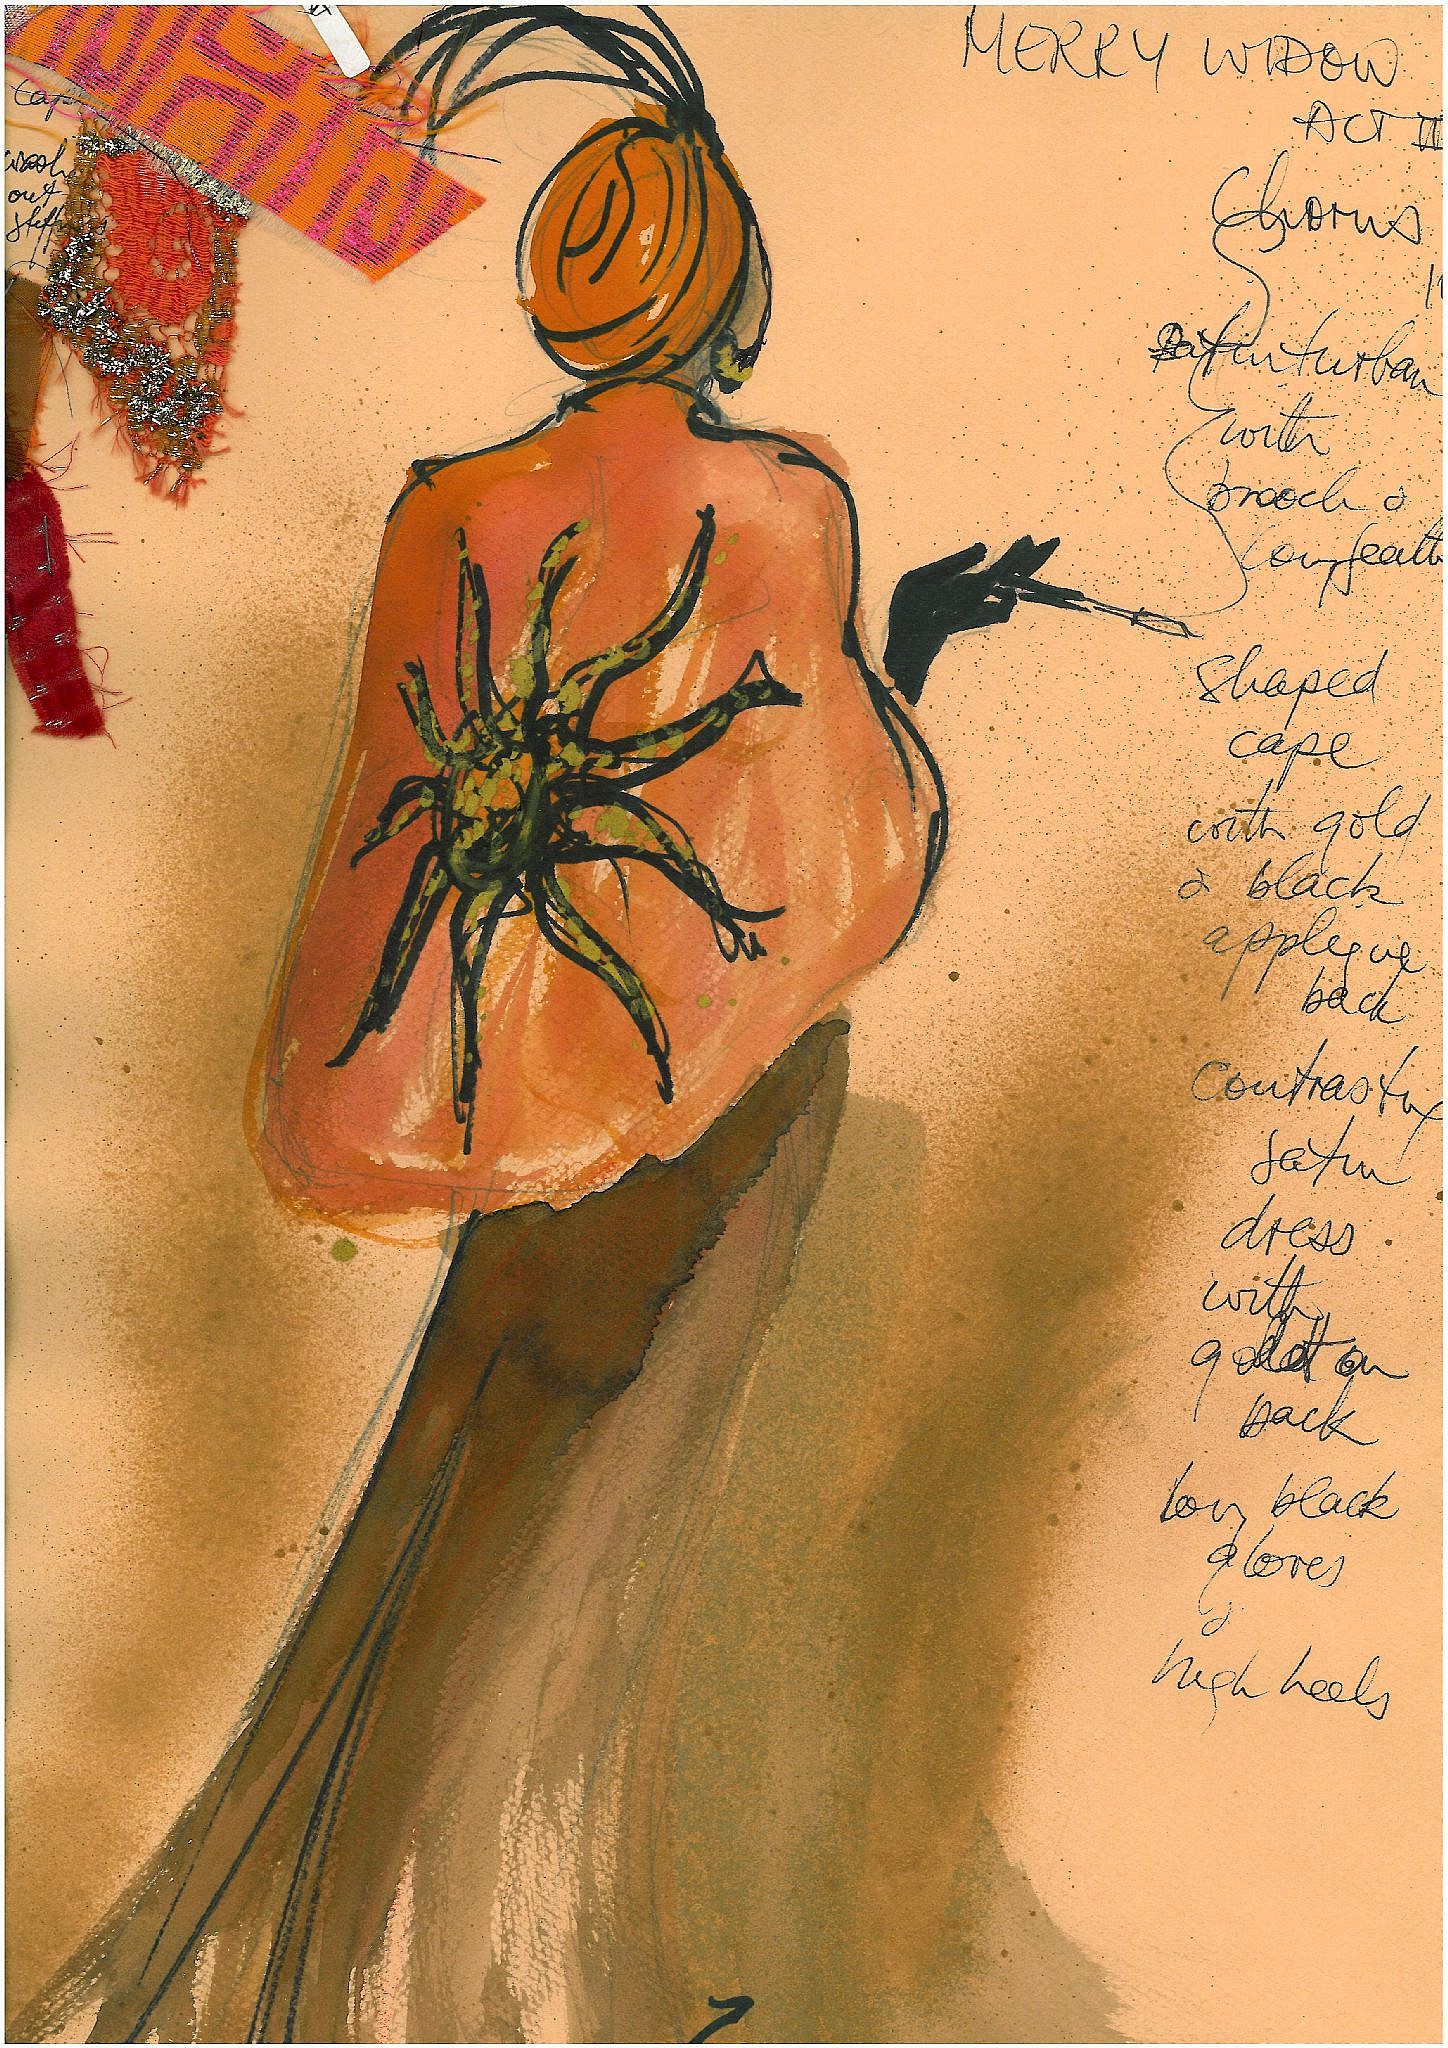 MERRY WIDOW
ACT II
Chorus
Satin turban
with
brooch &
long feath
Shaped
cape
with gold
& black
applique
back
Contrasting
satin
dress
with
godet on
back
long black
gloves
high heels
cap
wash
out